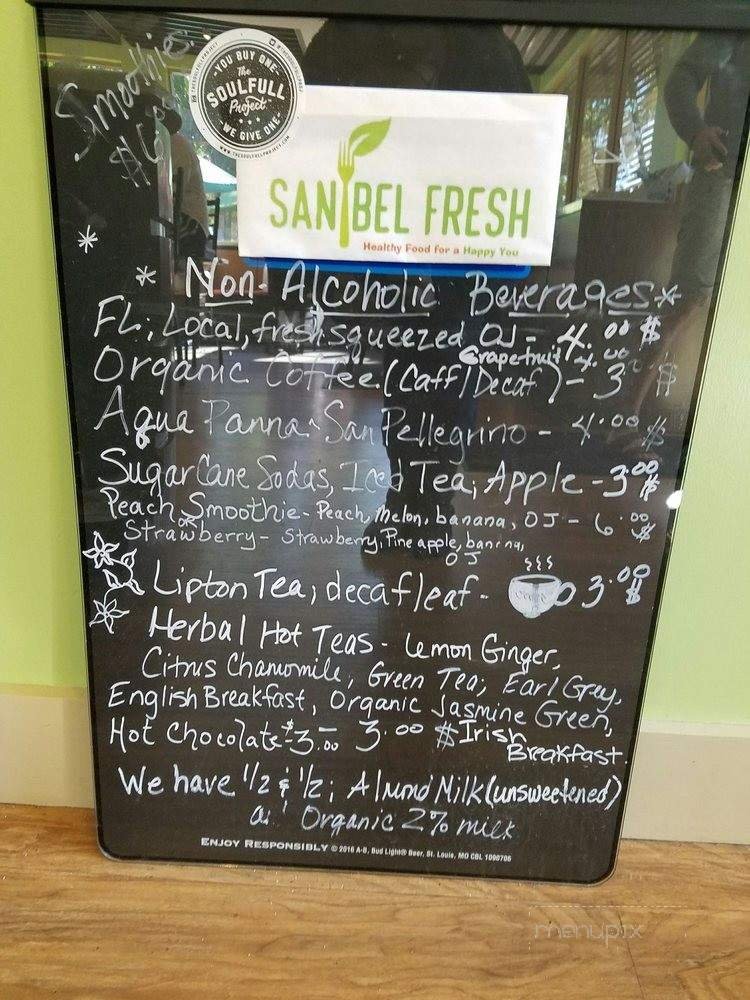 Smoothies
$6
YOU BUY ONE
The
SOULFULL
Project
WE GIVE ONE
WWW.THESOULFULLPROJECT.COM
SANIBEL FRESH
Healthy Food for a Happy You
* Non-Alcoholic Beverages *
FL; Local, fresh squeezed OJ - 4.00 $
Grapefruit 4.00
Organic Coffee (Caff/Decaf) - 3 $
Aqua Panna San Pellegrino - 4.00 $
Sugar Cane Sodas, Iced Tea, Apple - 3.00 $
Peach Smoothie - Peach, Melon, banana, OJ - 6.00 $
Strawberry - Strawberry, Pineapple, banana,
OJ
Lipton Tea, decaf leaf - 3.00 $
Herbal Hot Teas - Lemon Ginger,
Citrus Chamomile, Green Tea, Earl Grey,
English Breakfast, Organic Jasmine Green,
Hot Chocolate $3.00 3.00 $ Irish
Breakfast
We have 1/2 & 1/2; Almond Milk (unsweetened)
Organic 2% milk
ENJOY RESPONSIBLY © 2016 A-B, Bud Light® Beer, St. Louis, MO CBL 1098706
menupix